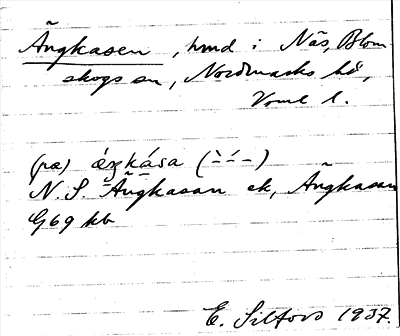 Ängkasen, hmd i Näs, Blom
skogs sn, Nordmarks hd,
Vrml l.
(pa) áŋkása (`´–)
N. S. Ängkasan ek, Ängkasan
G69 kb
E. Silfors 1937.